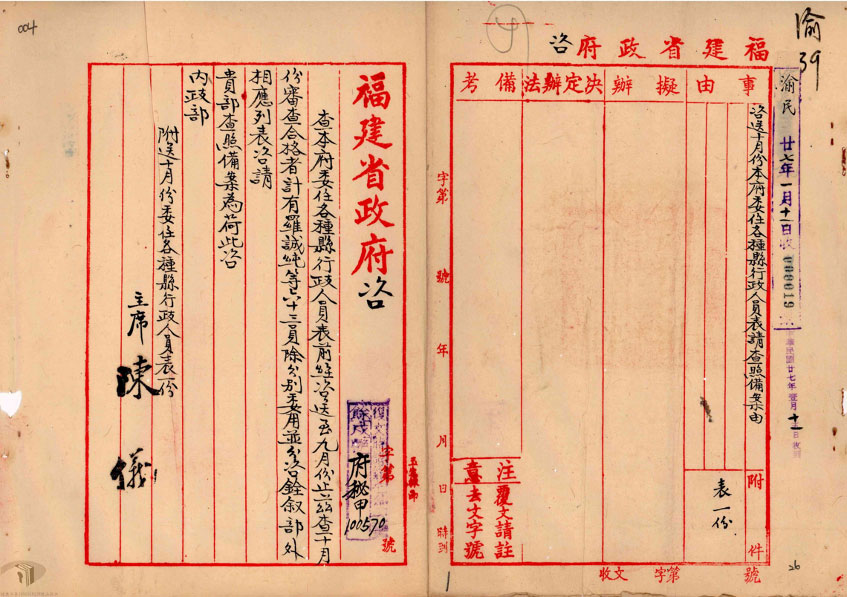 渝
39
福建省政府咨
事由
擬辦
決定辦法
備考
咨送十月份本府委任各種縣行政人員表請查照備案由
附件
表一份
注意
覆文請註
去文字號
收文 字第 號
字第 號 年 月 日 時到
渝民
廿七年一月十一日收
000019
民國廿七年壹月十一日收到
26
福建省政府咨
字第 號
府秘甲
100570
查本府委任各種縣行政人員表前經咨送至九月份止茲查十月
份審查合格者計有羅誠純等六十三員除分別委用並分咨銓叙部外
相應列表咨請
貴部查照備案為荷此咨
內政部
附送十月份委任各種縣行政人員表一份
主席 陳儀
004